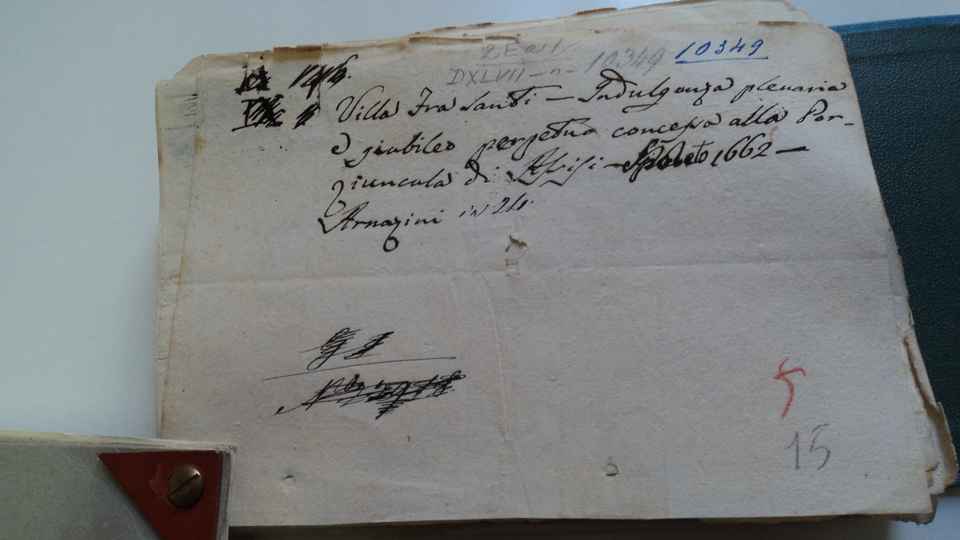 10349
DXLVII-n- 10349
Villa Fra Santi — Indulgenza plenaria
e giubileo perpetuo concessa alla Por-
ziuncula di Assisi — Spoleto 1662 —
Arnazini in 24.
15